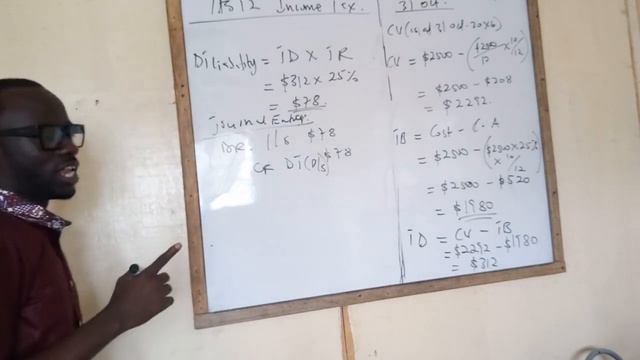 IAS 12 Income Tax.
DT liability = TD X TR
= $312 x 25%
= $78.
Journal Entry:
DR I/S $78
CR DT (O/S) $78
31 Oct.
CV (as at 31 Oct. 20x6)
CV = $2500 - ($2500/10 x 10/12)
= $2500 - $208
= $2292.
TB = Cost - C.A
= $2500 - ($2500 x 25% x 10/12)
= $2500 - $520
= $1980
TD = CV - TB
= $2292 - $1980
= $312